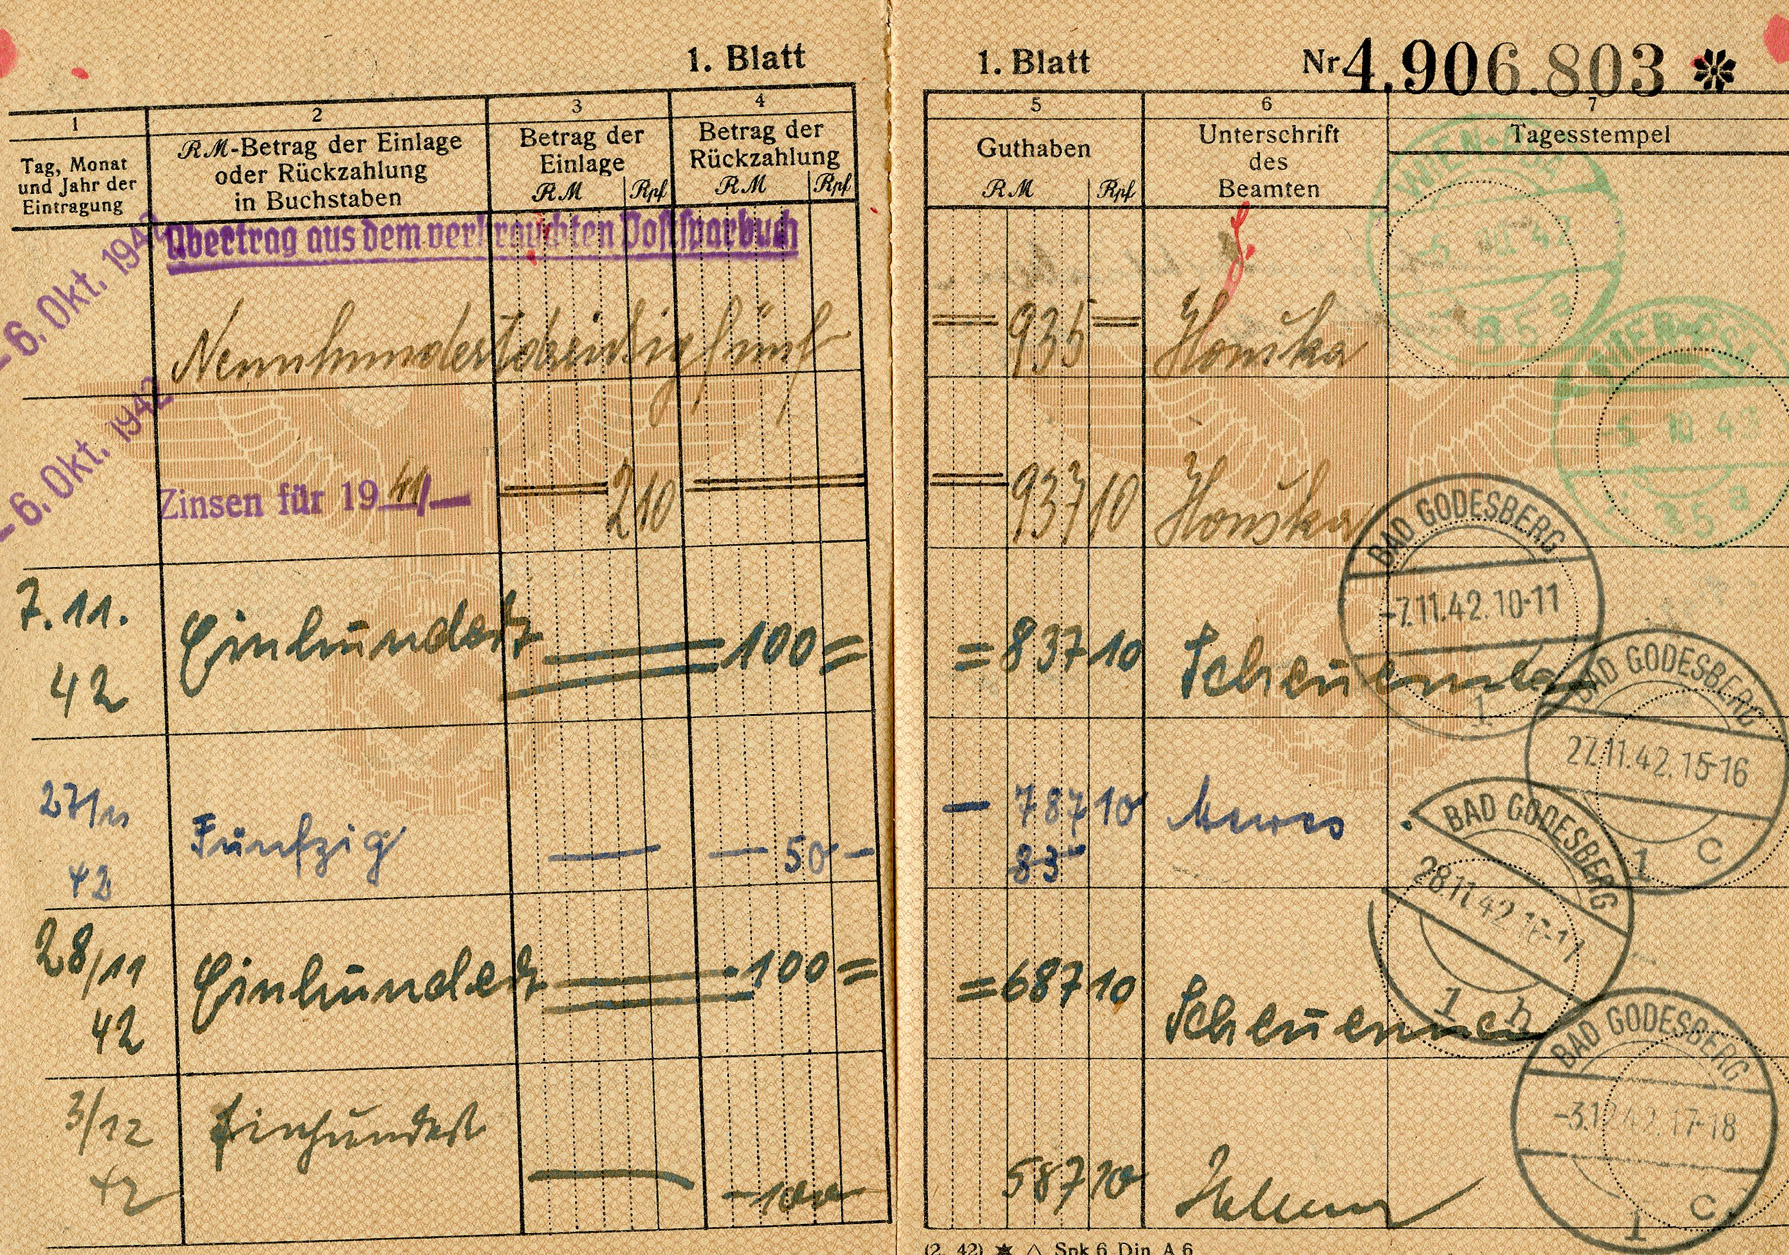 1. Blatt
1 2 3 4
Tag, Monat und Jahr der Eintragung
RM-Betrag der Einlage oder Rückzahlung in Buchstaben
Betrag der Einlage
RM Rpf
Betrag der Rückzahlung
RM Rpf
- 6. Okt. 1942
Übertrag aus dem verbrauchten Postsparbuch
Neunhundertdreißigfünf
- 6. Okt. 1942
Zinsen für 1941 2 10
7.11.
42
Einhundert 100 =
27/11
42
Fünfzig — — 50 —
28/11
42
Einhundert 100 =
3/12
42
Einhundert — - 100 -
1. Blatt Nr 4.906.803 *
5 6 7
Guthaben
RM Rpf
Unterschrift des Beamten
Tagesstempel
= 935 = Houska
WIEN
85 a
= 937 10 Houska
WIEN
-5. 10 42
85 a
= 837 10
BAD GODESBERG
-7.11.42.10-11
1
— 787 10
83
BAD GODESBERG
27.11.42.15-16
1 c
= 687 10
BAD GODESBERG
28.11.42
1 h
587 10
BAD GODESBERG
-3.12.42.17-18
1 c
(2. 42) ★ △ Spk 6 Din A 6